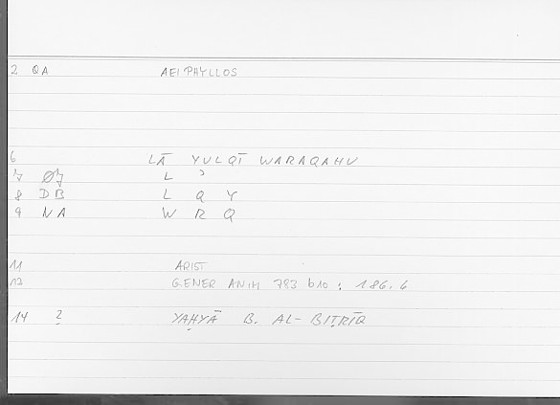 2 QA AEIPHYLLOS
6 LĀ YULQĪ WARAQAHU
7 ØJ L ʾ
8 DB L Q Y
9 NA W R Q
11 ARIST
12 GENER ANIM 783 b10 : 186.6
14 ? YAḤYĀ B. AL-BIṬRĪQ